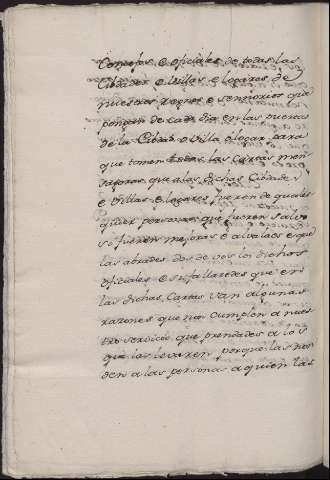 Concejos e oficiales de todas las
Cibdades e Villas e logares de
nuestros regnos e señorios que
pongan de cada dia en las puertas
de la Cibdad o Villa o logar para
que tomen todas las cartas men
sageras que a las dichas Cibdades
e Villas e logares fueren de quales
quier personas que fueren salvo
si fueren nuestras e alvalaes e que
las abrades dos de vos los dichos
oficiales e si fallaredes que en
las dichas Cartas van algunas
razones que non cumplen a nues
tro servicio que prendades a los
que las levaren porque las non
den a las personas a quien las